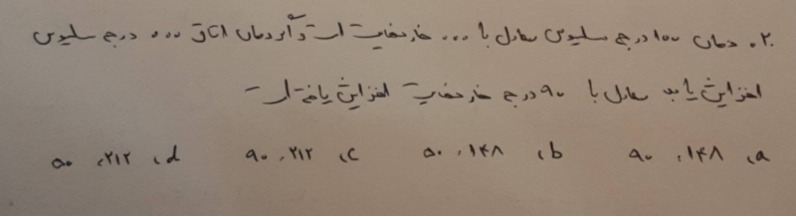 ۲۰. دمای ۱۰۰ درجه سلیوس معادل با ... فارنهایت است و اگر دمای اتاق ... درجه سلیوس
افزایش یابد معادل با ۹۰ درجه فارنهایت افزایش یافته است
a، ۱۴۸، ۹۰ b، ۱۴۸، ۵۰ c، ۲۱۲، ۹۰ d، ۲۱۲، ۵۰